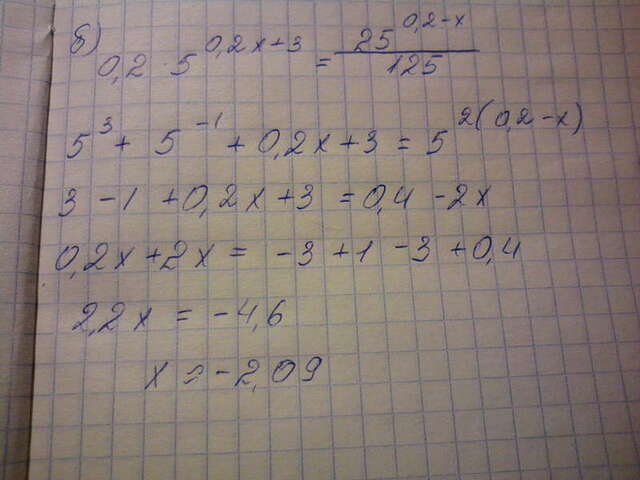 б)
0,2 · 5^{0,2x+3} = \frac{25^{0,2-x}}{125}
5^3 + 5^{-1} + 0,2x+3 = 5^{2(0,2-x)}
3 - 1 + 0,2x + 3 = 0,4 - 2x
0,2x + 2x = -3 + 1 - 3 + 0,4
2,2x = -4,6
x ≈ -2,09